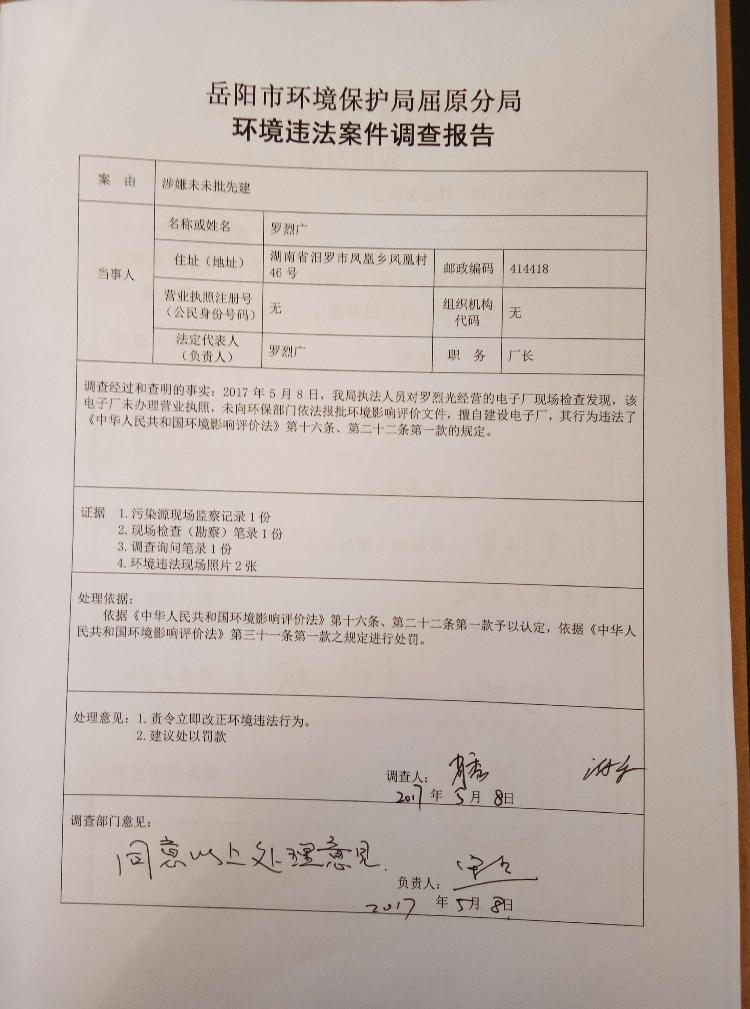 岳阳市环境保护局屈原分局
环境违法案件调查报告
案 由
涉嫌未未批先建
当事人
名称或姓名
罗烈广
住址（地址）
湖南省汨罗市凤凰乡凤凰村
46号
邮政编码
414418
营业执照注册号
（公民身份号码）
无
组织机构
代码
无
法定代表人
（负责人）
罗烈广
职 务
厂长
调查经过和查明的事实：2017年5月8日，我局执法人员对罗烈光经营的电子厂现场检查发现，该
电子厂未办理营业执照，未向环保部门依法报批环境影响评价文件，擅自建设电子厂，其行为违法了
《中华人民共和国环境影响评价法》第十六条、第二十二条第一款的规定。
证据 1.污染源现场监察记录1份
2.现场检查（勘察）笔录1份
3.调查询问笔录1份
4.环境违法现场照片2张
处理依据：
依据《中华人民共和国环境影响评价法》第十六条、第二十二条第一款予以认定，依据《中华人
民共和国环境影响评价法》第三十一条第一款之规定进行处罚。
处理意见：1.责令立即改正环境违法行为。
2.建议处以罚款
调查人：
2017年5月8日
调查部门意见：
同意以上处理意见.
负责人：
2017年5月8日